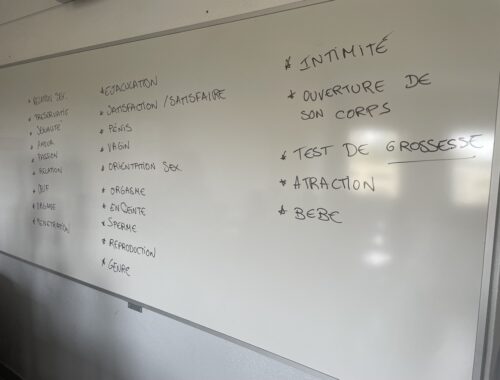 * RELATION SEX.
* PRESERVATIF
* SEXUALITÉ
* AMOUR
* PASSION
* RELATION
* ORGASME
* PENETRATION
* EJACULATION
* SATISFACTION / SATISFAIRE
* PÉNIS
* VAGIN
* ORIENTATION SEX.
* ORGASME
* ENCEINTE
* SPERME
* REPRODUCTION
* GENRE
* INTIMITÉ
* OUVERTURE DE
SON CORPS
* TEST DE GROSSESSE
* ATRACTION
* BEBE